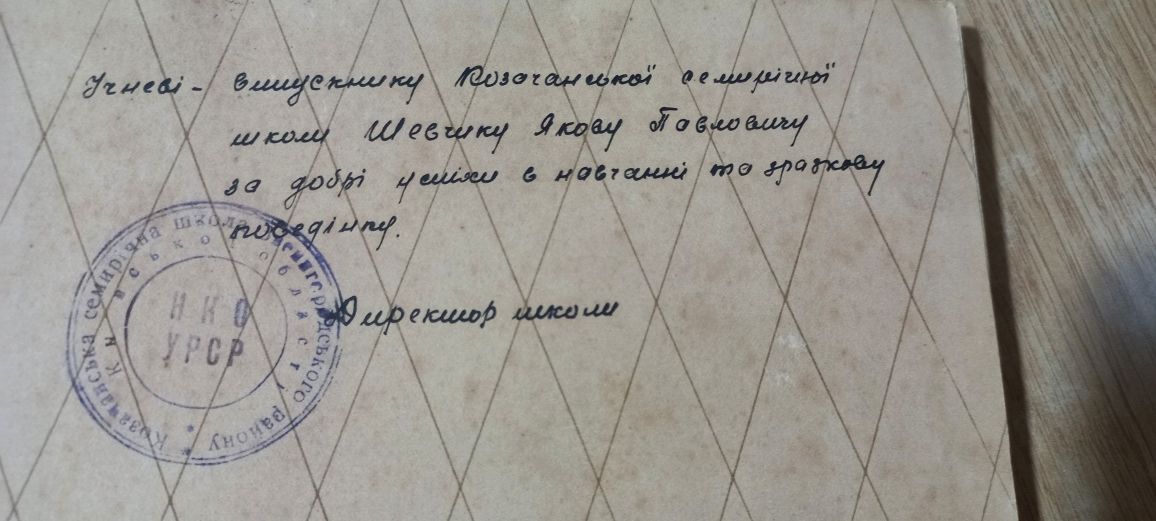 Учневі - випускнику Козачанської семирічної
школи Шевчику Якову Павловичу
за добрі успіхи в навчанні та зразкову
поведінку.
Директор школи
* Козачанська семирічна школа Звенигородського району *
Київської області
НКО
УРСР